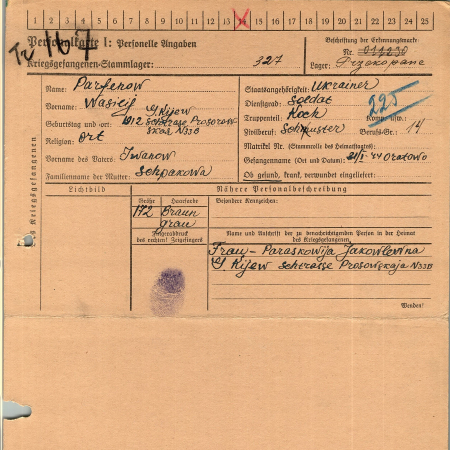 1 2 3 4 5 6 7 8 9 10 11 12 13 14 15 16 17 18 19 20 21 22 23 24 25
Personalkarte I: Personelle Angaben
Kriegsgefangenen-Stammlager: 327
Beschriftung der Erkennungsmarke
Nr. 011230
Lager: Przekopane
Name: Parfenow
Vorname: Wasilij
Geburtstag und -ort: 1912 G Kijew
Religion: Ort
Vorname des Vaters: Iwanow
Familienname der Mutter: Schpakowa
Staatsangehörigkeit: Ukrainer
Dienstgrad: Soldat
Truppenteil: Koch Komp. usw.:
225
Zivilberuf: Schuster Berufs-Gr.: 14
Matrikel Nr. (Stammrolle des Heimatstaates)
Gefangennahme (Ort und Datum): Oratowo
Ob gesund, krank, verwundet eingeliefert:
des Kriegsgefangenen
Lichtbild
Nähere Personalbeschreibung
Größe Haarfarbe Besondere Kennzeichen:
172 Braun
grau
Fingerabdruck
des rechten! Zeigefingers
Name und Anschrift der zu benachrichtigenden Person in der Heimat
des Kriegsgefangenen
Frau - Paraskowija Jakowlewna
G Kijew schtrasse Prosowskaja N33B
Wenden!